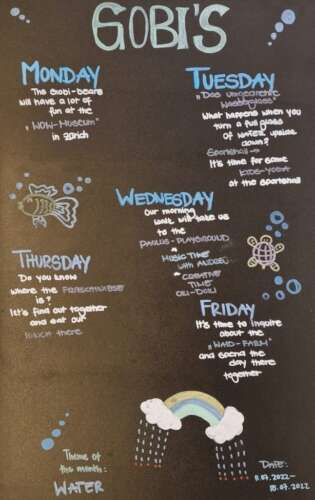 GOBI'S
MONDAY
The Gobi-bears
will have a lot of
fun at the
„WOW-Museum"
in Zürich
TUESDAY
„Das umgedrehte
Wasserglass"
What happens when you
turn a full glass
of water upside
down?
Sportshall →
It's time for some
KIDS-YOGA
at the Sportshall
WEDNESDAY
Our morning
walk will take us
to the
PAULUS-PLAYGROUND
Music Time
with
CREATIVE
TIME
THURSDAY
Do you know
where the
is?
Let's find out together
and eat our
lunch there
FRIDAY
It's time to inquire
about the
„WAID-FARM"
and spend the
day there
together
Theme of
the month:
WATER
DATE:
11.07.2022-
15.07.2022